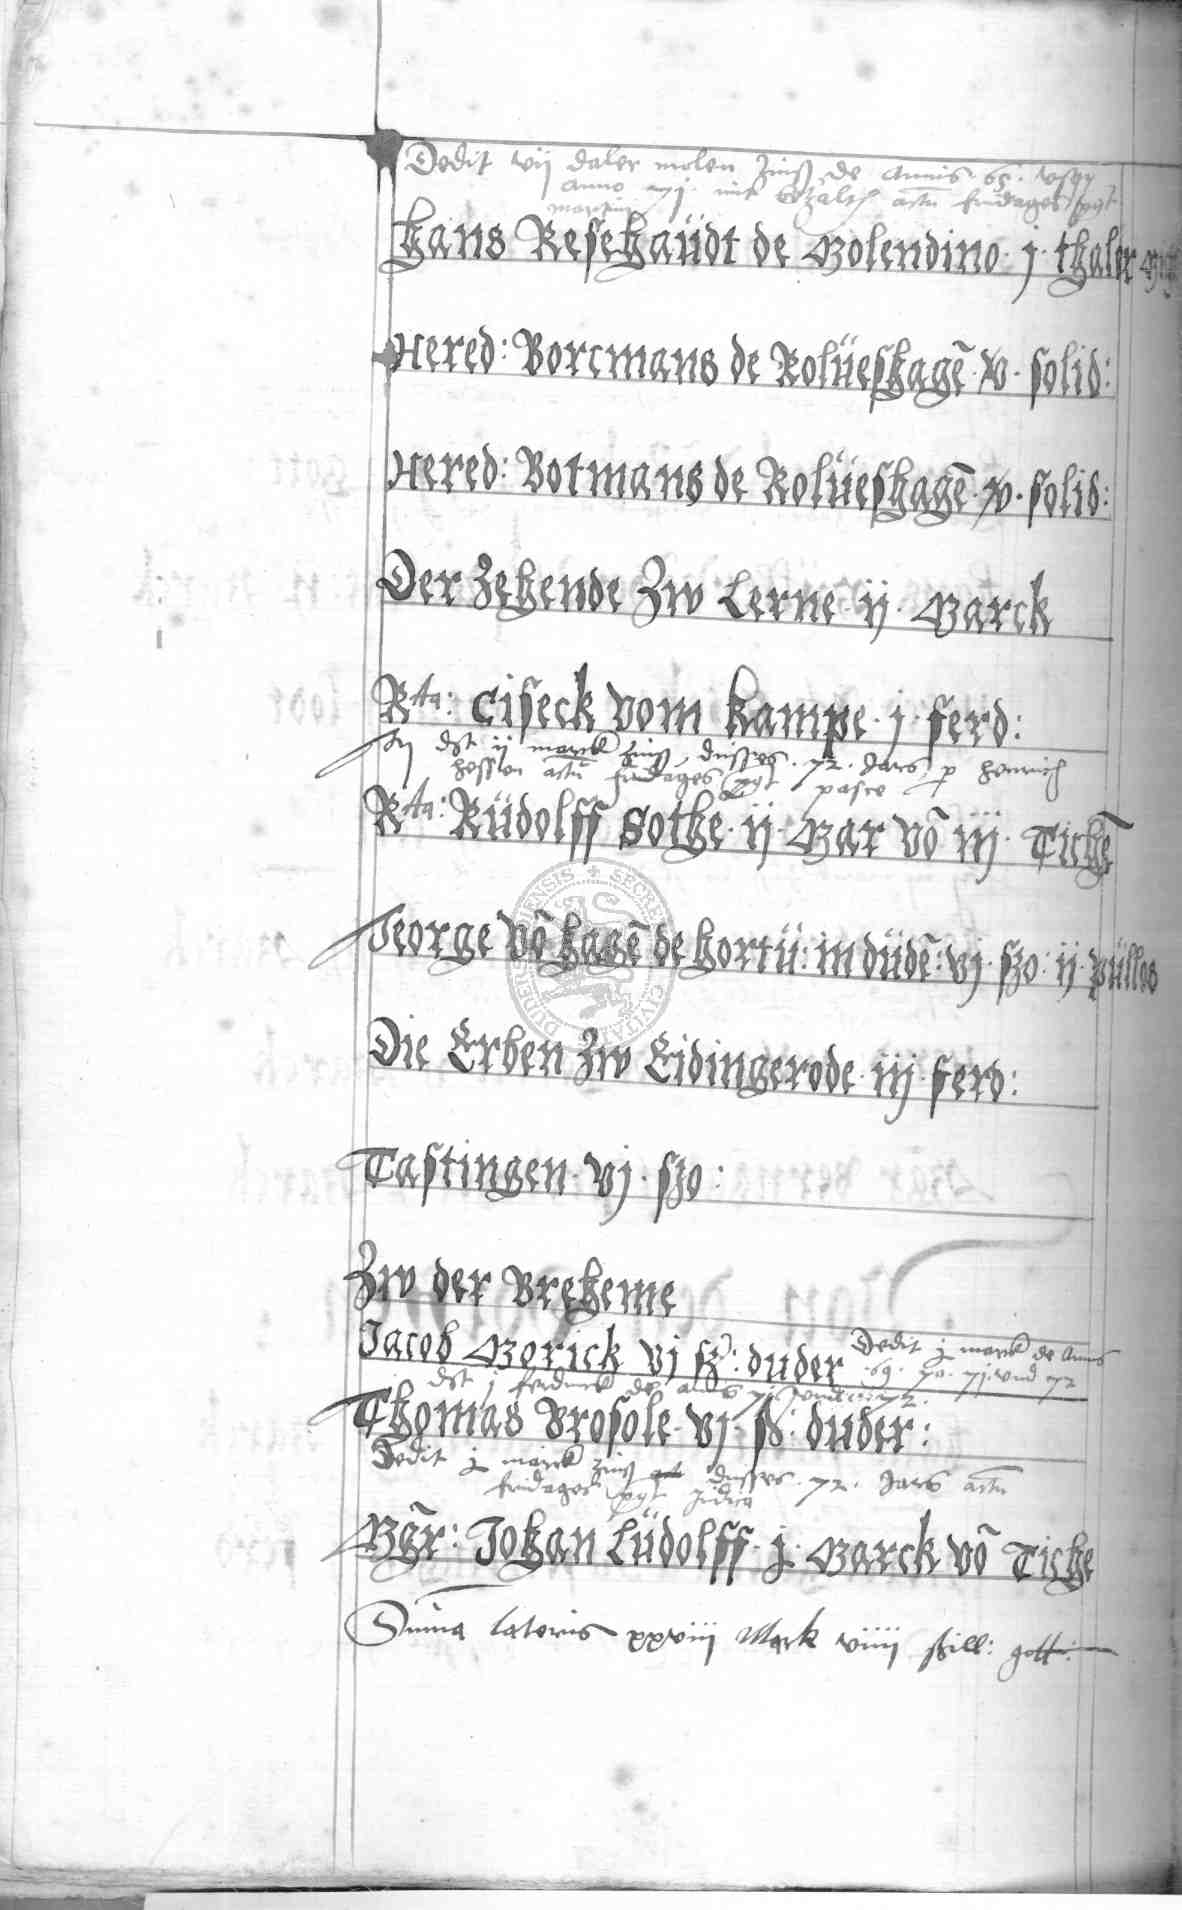 Dedit vij daler molen zinß de annis 65. vsqz
anno 71. mit bezalth actu fridages pgt
martini
Hans Resehaüdt de Molendino · j · thaler
Hered: Borcmans de Rolüeshagē · v · solid:
Hered: Botmans de Rolüeshagē · v · solid:
Der Zehende Zw Lerne · ij · Marck
Rta: Ciseck vom Kampe · j · ferd:
dt ij marck zinß disses · 72 · Jars p henrich
hesslen actū fridages pgt pasce
Rta: Rüdolff Sothe · ij · Mar vō iij · Tichē
Jeorge vō hagē de hortü: in düdē: vj · szo: ij · püllos
Die Erben Zw Eidingerode · iij · ferd:
Tastingen · vj · szo:
Zw der Breheme
Jacob Morick vj sz: duder Dedit j marck de annis
· 69 · 70 · 71 · vnd 72
dt j ferdinck de annis 71 vnd 72.
Thomas Brosole · vj · ß: duder:
Dedit j marck zinß disses · 72 · Jars actū
fridages pgt Judica
Mgr: Johan Lüdolff · j · Marck vō Tiche
Suma lateris xxviii Mark viiii ßill: gott:
SECRET CIVITATIS DUDERSTADIENSIS